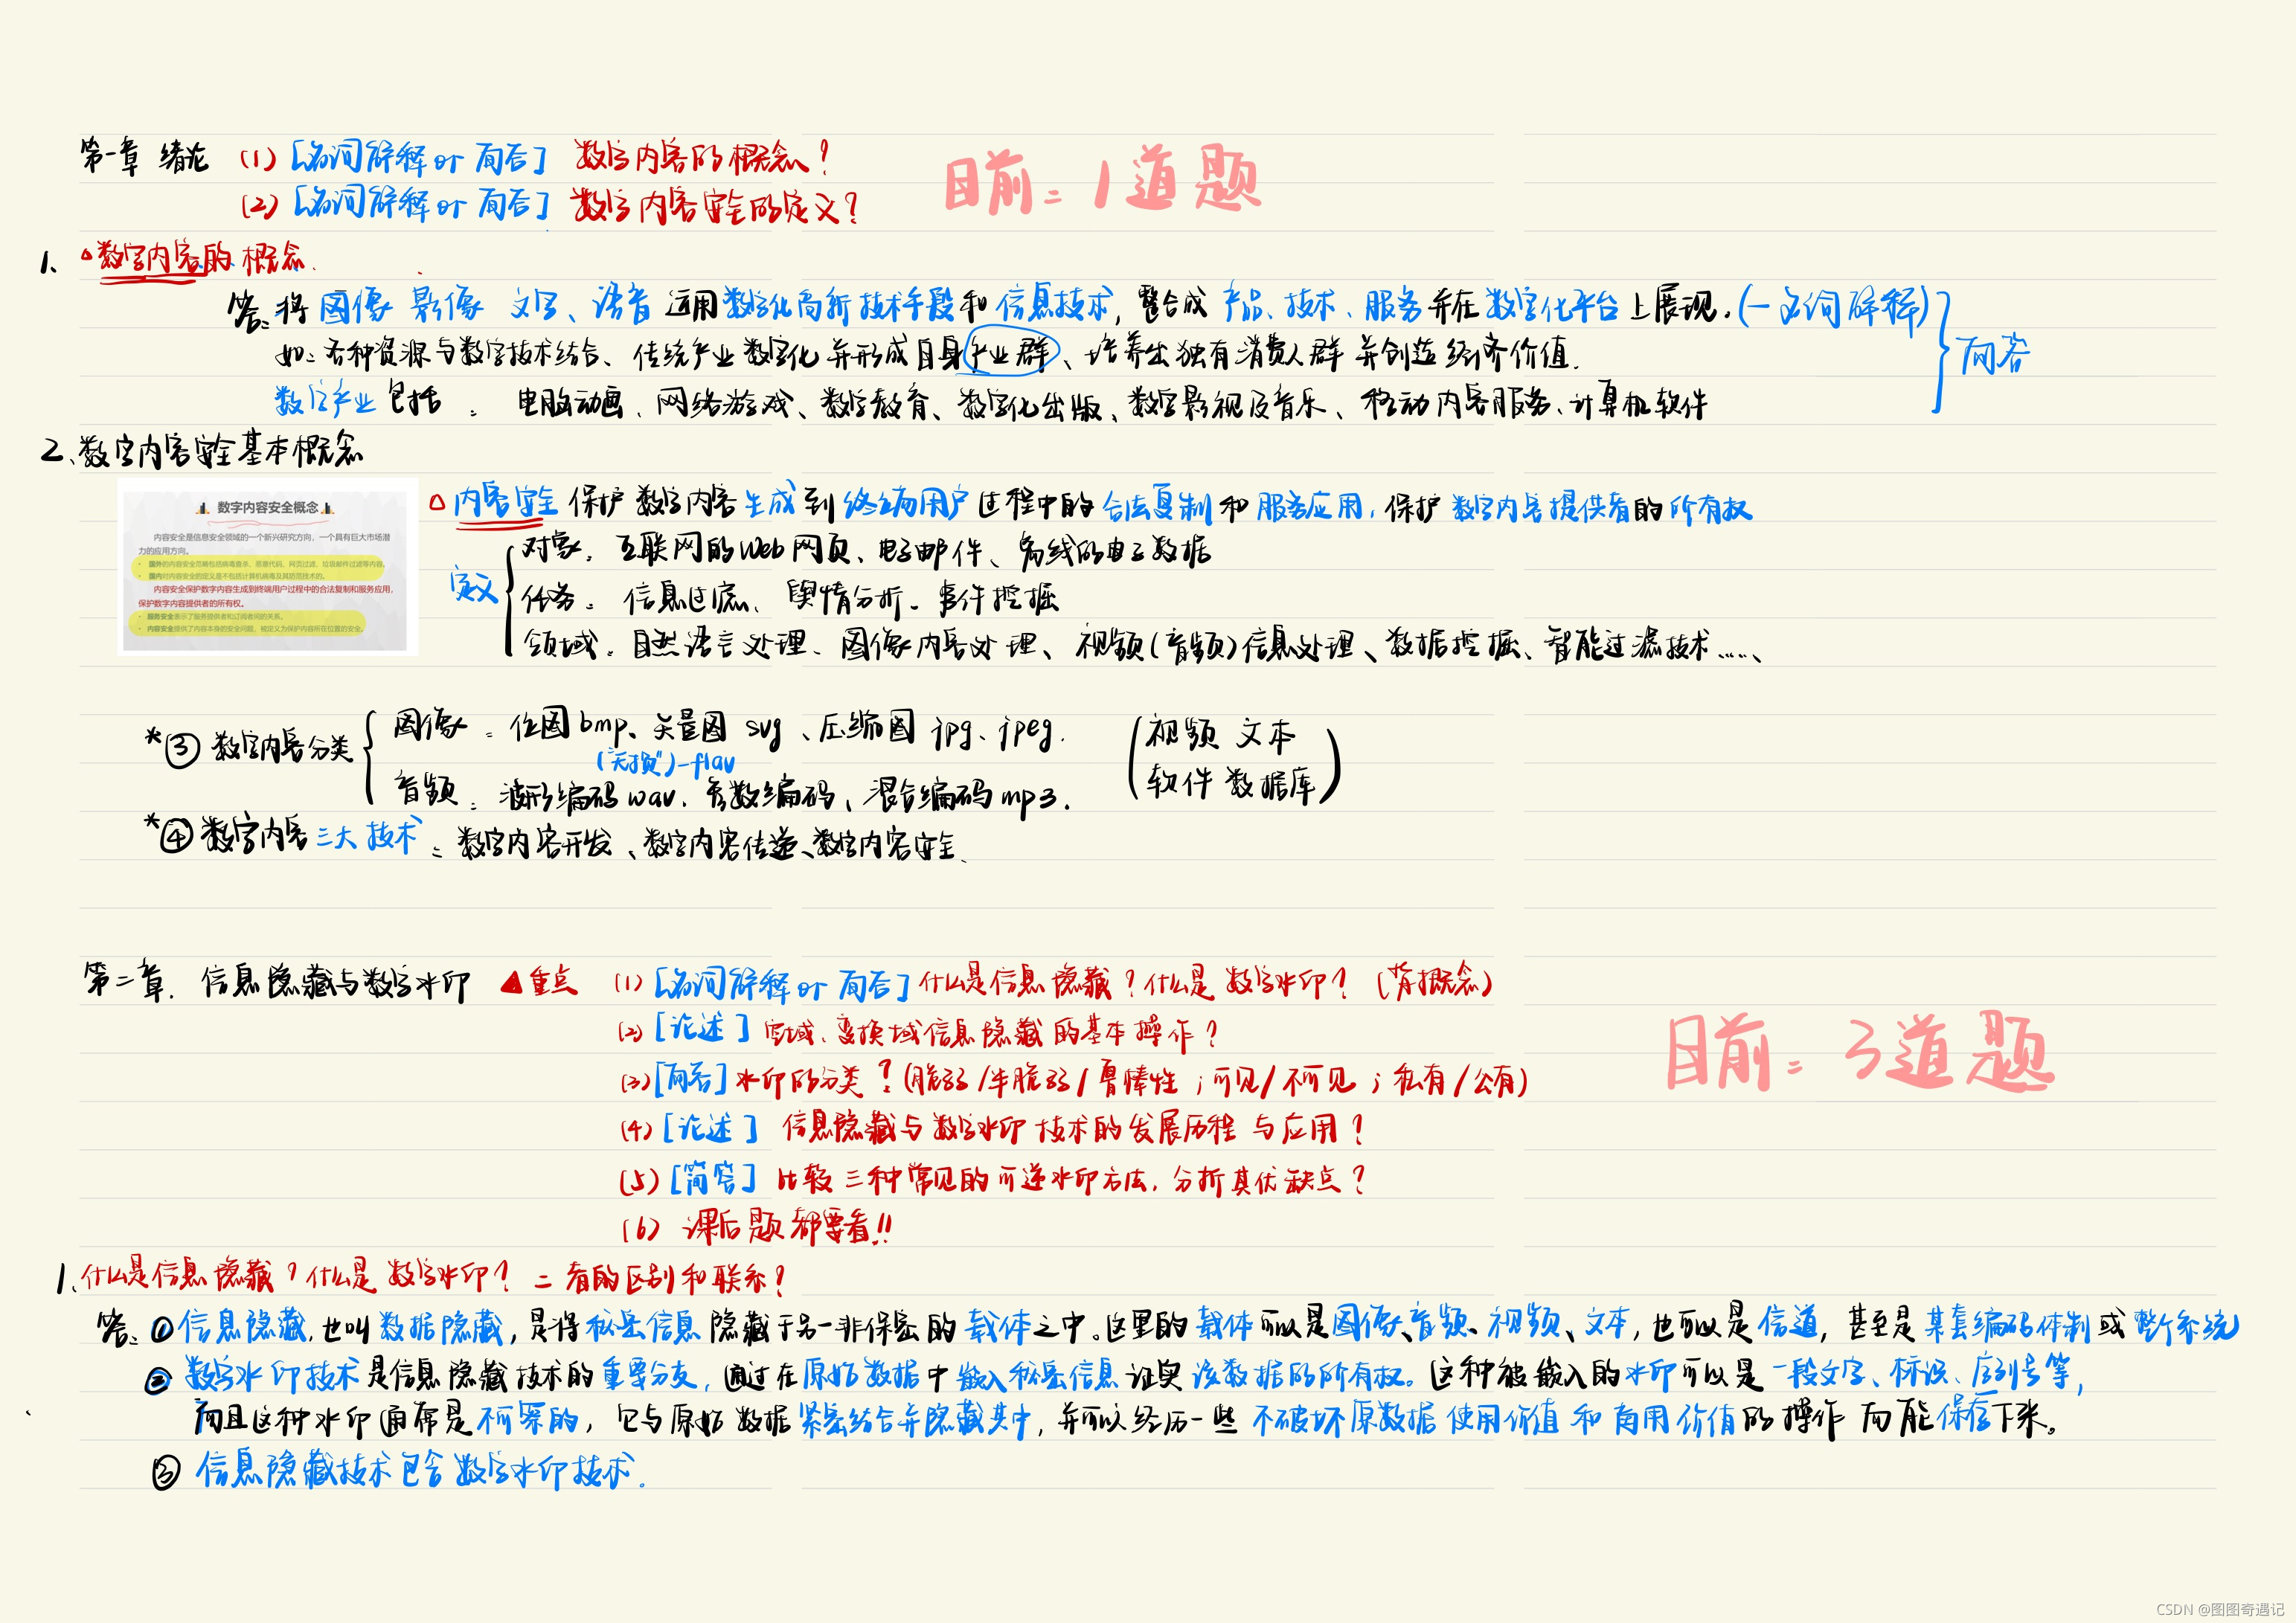 第一章 绪论 (1) [名词解释 or 简答] 数字内容的概念?
(2) [名词解释 or 简答] 数字内容安全的定义?
目前：1道题
1、△数字内容的概念.
答：将 图像 影像 文字、语音 运用数字化高新技术手段和信息技术，整合成 产品、技术、服务并在数字化平台上展现. (—名词解释)
如：各种资源与数字技术结合、传统产业数字化并形成自身产业群、培养出独有消费人群并创造经济价值.
简答
数字产业包括：电脑动画、网络游戏、数字教育、数字化出版、数字影视及音乐、移动内容服务、计算机软件
2、数字内容安全基本概念
数字内容安全概念
内容安全是信息安全领域的一个新兴研究方向，一个具有巨大市场潜
力的应用方向。
• 国外的内容安全范畴包括病毒查杀、恶意代码、网页过滤、垃圾邮件过滤等内容。
• 国内对内容安全的定义是不包括计算机病毒及其防范技术的。
内容安全保护数字内容生成到终端用户过程中的合法复制和服务应用，
保护数字内容提供者的所有权。
• 服务安全表示了服务提供者和订阅者间的关系。
• 内容安全提供了内容本身的安全问题，被定义为保护内容所在位置的安全。
△ 内容安全 保护数字内容生成到终端用户过程中的合法复制和服务应用，保护数字内容提供者的所有权
定义
对象：互联网的Web网页、电子邮件、离线的电子数据
任务：信息过滤、舆情分析、事件挖掘
领域：自然语言处理、图像内容处理、视频(音频)信息处理、数据挖掘、智能过滤技术……、
*③ 数字内容分类
图像：位图bmp、矢量图 svg、压缩图 jpg、jpeg.
("无损")-flav
音频：波形编码wav、参数编码、混合编码mp3.
(视频 文本
软件 数据库)
*④数字内容三大技术：数字内容开发、数字内容传递、数字内容安全、
第二章. 信息隐藏与数字水印 ▲重点 (1) [名词解释 or 简答] 什么是信息隐藏?什么是数字水印? (背概念)
(2) [论述] 空域、变换域信息隐藏的基本操作?
(3) [简答] 水印的分类?(脆弱/半脆弱/鲁棒性；可见/不可见；私有/公有)
目前：3道题
(4) [论述] 信息隐藏与数字水印技术的发展历程与应用?
(5) [简答] 比较三种常见的可逆水印方法，分析其优缺点?
(6) 课后题都要看!!
1、什么是信息隐藏?什么是数字水印?二者的区别和联系?
答：①信息隐藏，也叫数据隐藏，是将秘密信息隐藏于另一非保密的载体之中。这里的载体可以是图像、音频、视频、文本，也可以是信道，甚至是某套编码体制或整个系统
② 数字水印技术是信息隐藏技术的重要分支，通过在原始数据中嵌入秘密信息证实该数据的所有权。这种被嵌入的水印可以是一段文字、标识、序列号等，
而且这种水印通常是不可察的，它与原始数据紧密结合并隐藏其中，并可以经历一些不破坏原数据使用价值和商用价值的操作而能保存下来。
③ 信息隐藏技术包含数字水印技术.
CSDN @图图奇遇记